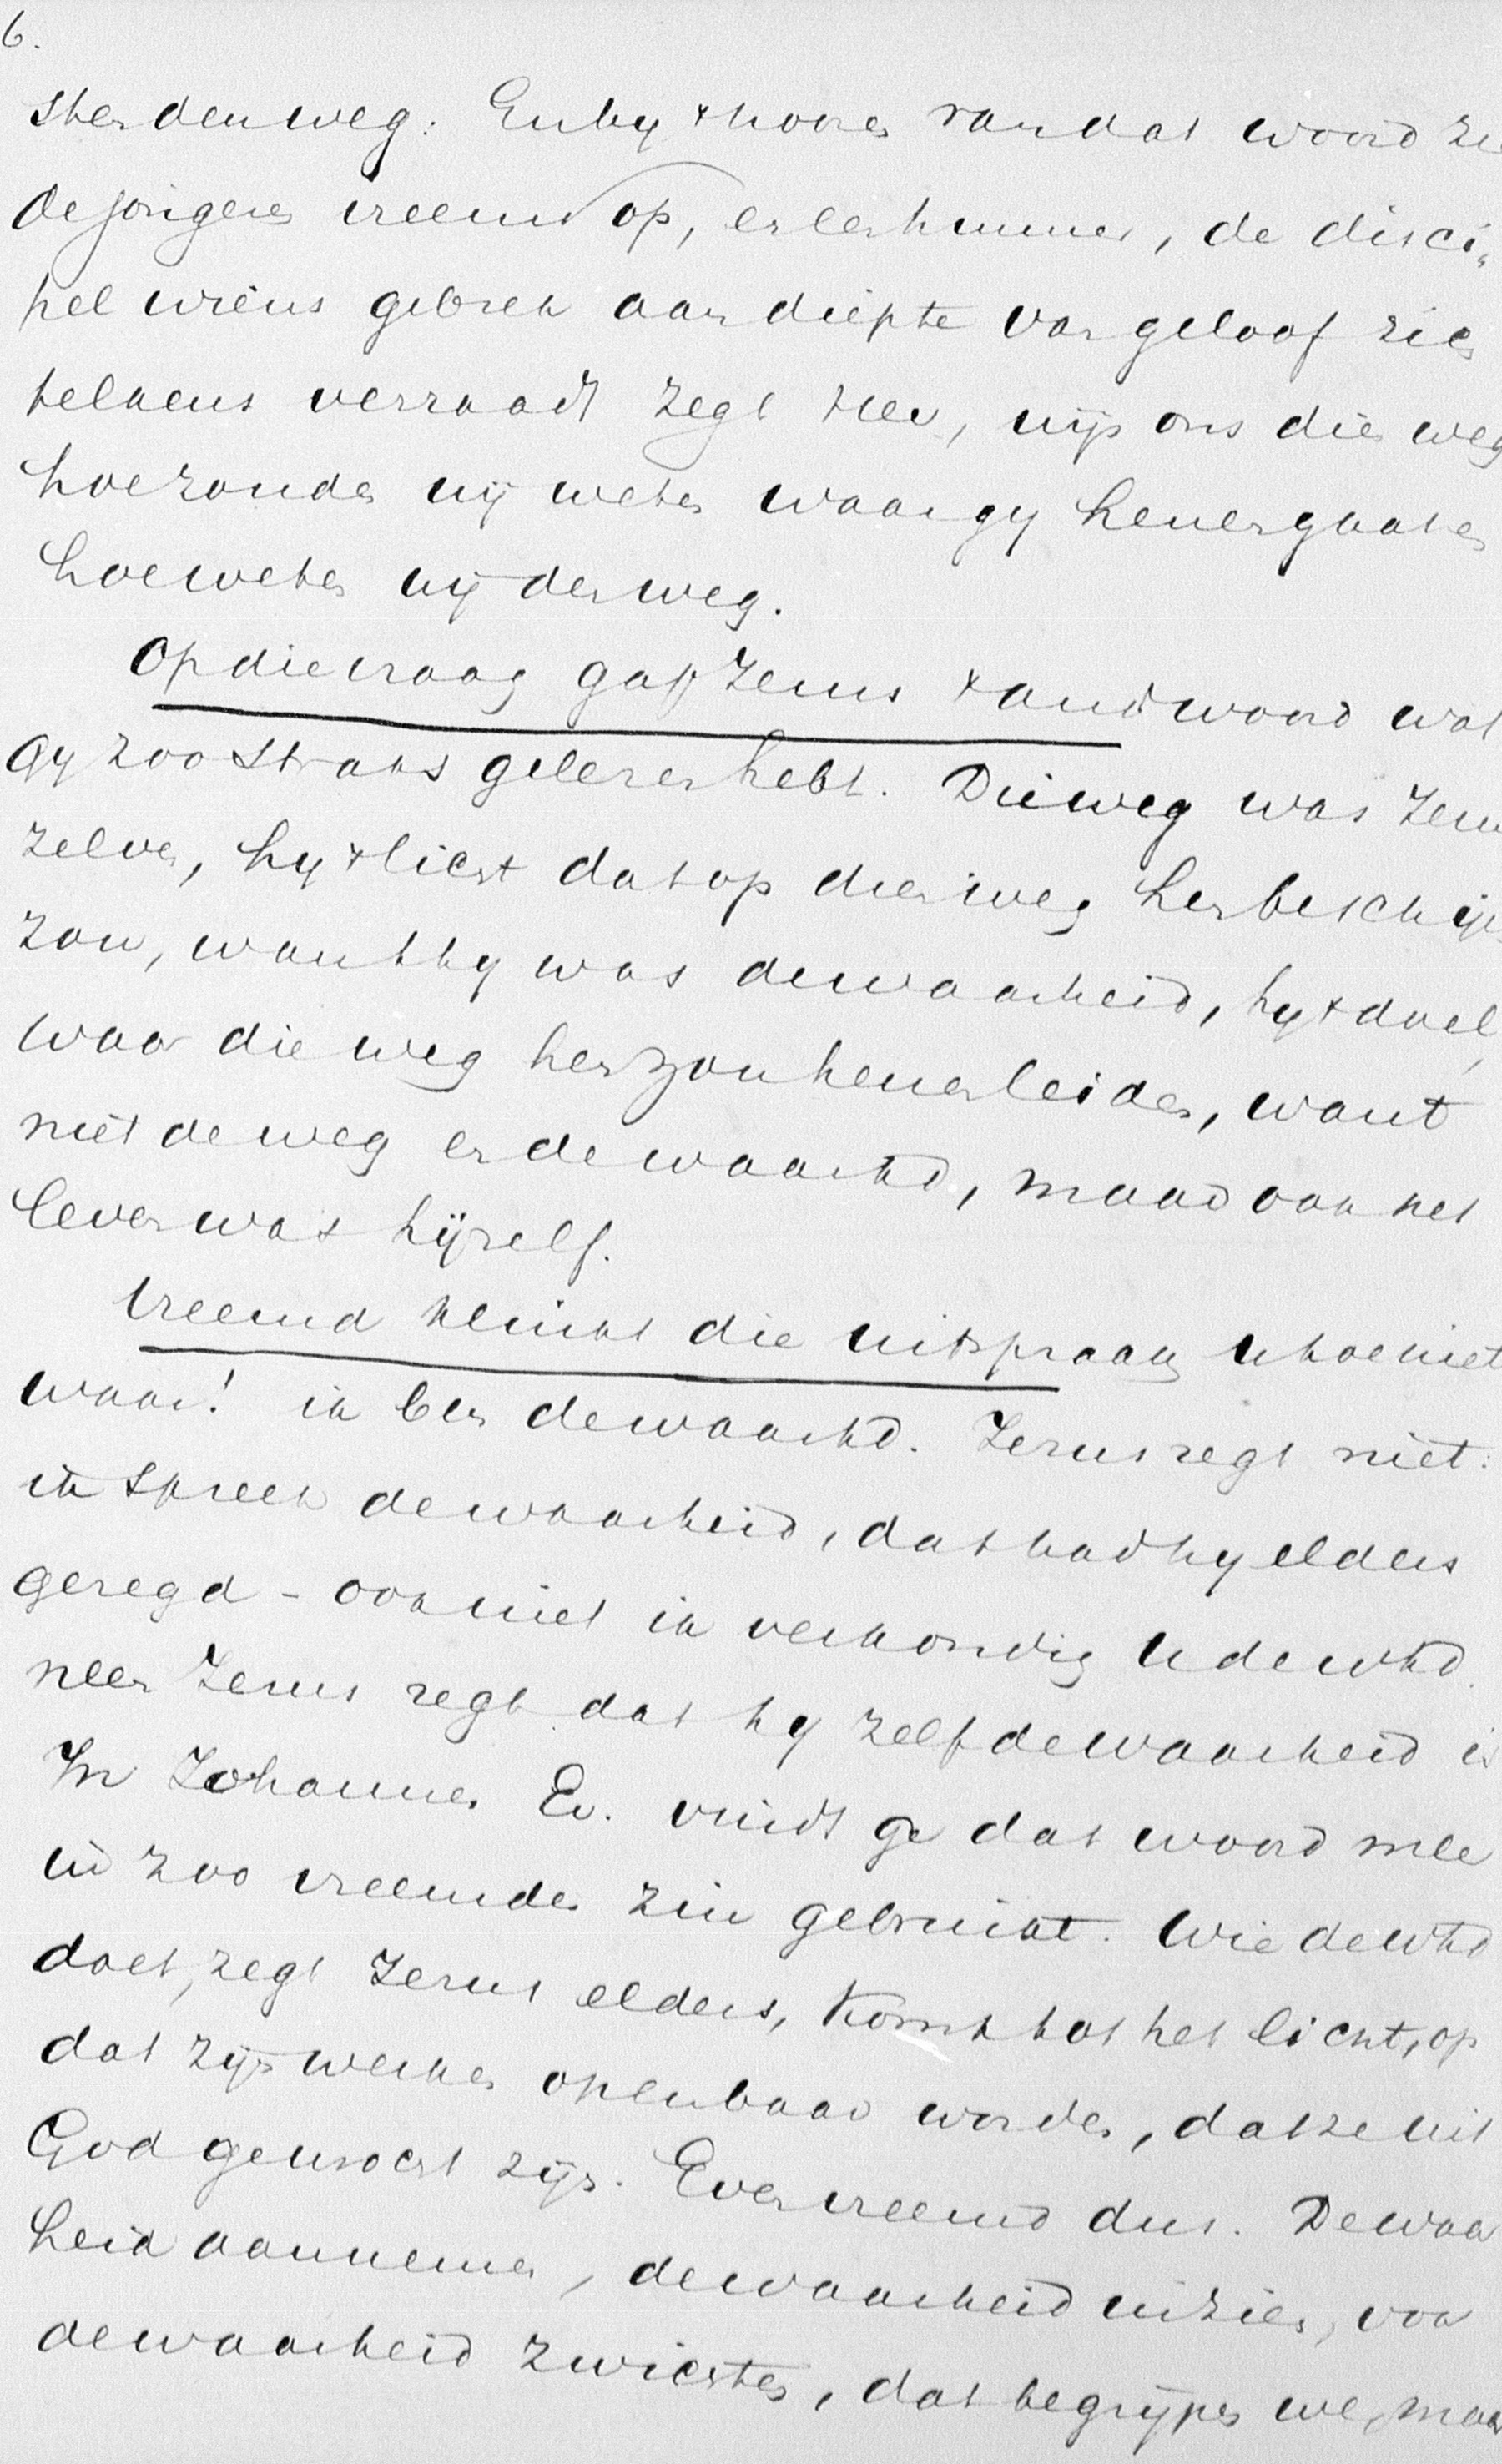 6.
ster den weg: En by 't hooren van dat woord zie
de jongeren vreemd op, en een hunner, de disci„
pel wiens gebrek aan diepte van geloof zich
telkens verraadt zegt Heer, wijs ons dien weg
hoe zouden wij weten waar gy henengaat en
hoe weten wij den weg.
Op die vraag gaf Jezus 't andwoord wat
gy zoo straks gelezen hebt. Die weg was Jezus
zelve, hy 't licht dat op dien weg hen beschijn
zou, want hy was de waarheid, hy 't doel,
waar die weg hen zou henenleiden, want
niet de weg en de waarhd, maar ook het
leven was hijzelf.
Vreemd klinkt die uitspraak u hoe niet
waar! ik ben de waarhd. Jezus zegt niet:
ik spreek de waarheid, dat had hy elders
gezegd - ook niet ik verkondig u de whd.
neen Jezus zegt dat hy zelf de waarheid is
In Johannes Ev. vindt ge dat woord mee
in zoo vreemden zin gebruikt. Wie de whd
doet, zegt Jezus elders, komt tot het licht, op
dat zijn werken openbaar worden, dat ze uit
God gewrocht zijn. Even vreemd dus. De waa
heid aannemen, de waarheid inzien, voor
de waarheid zwichten, dat begrijpen we, maar